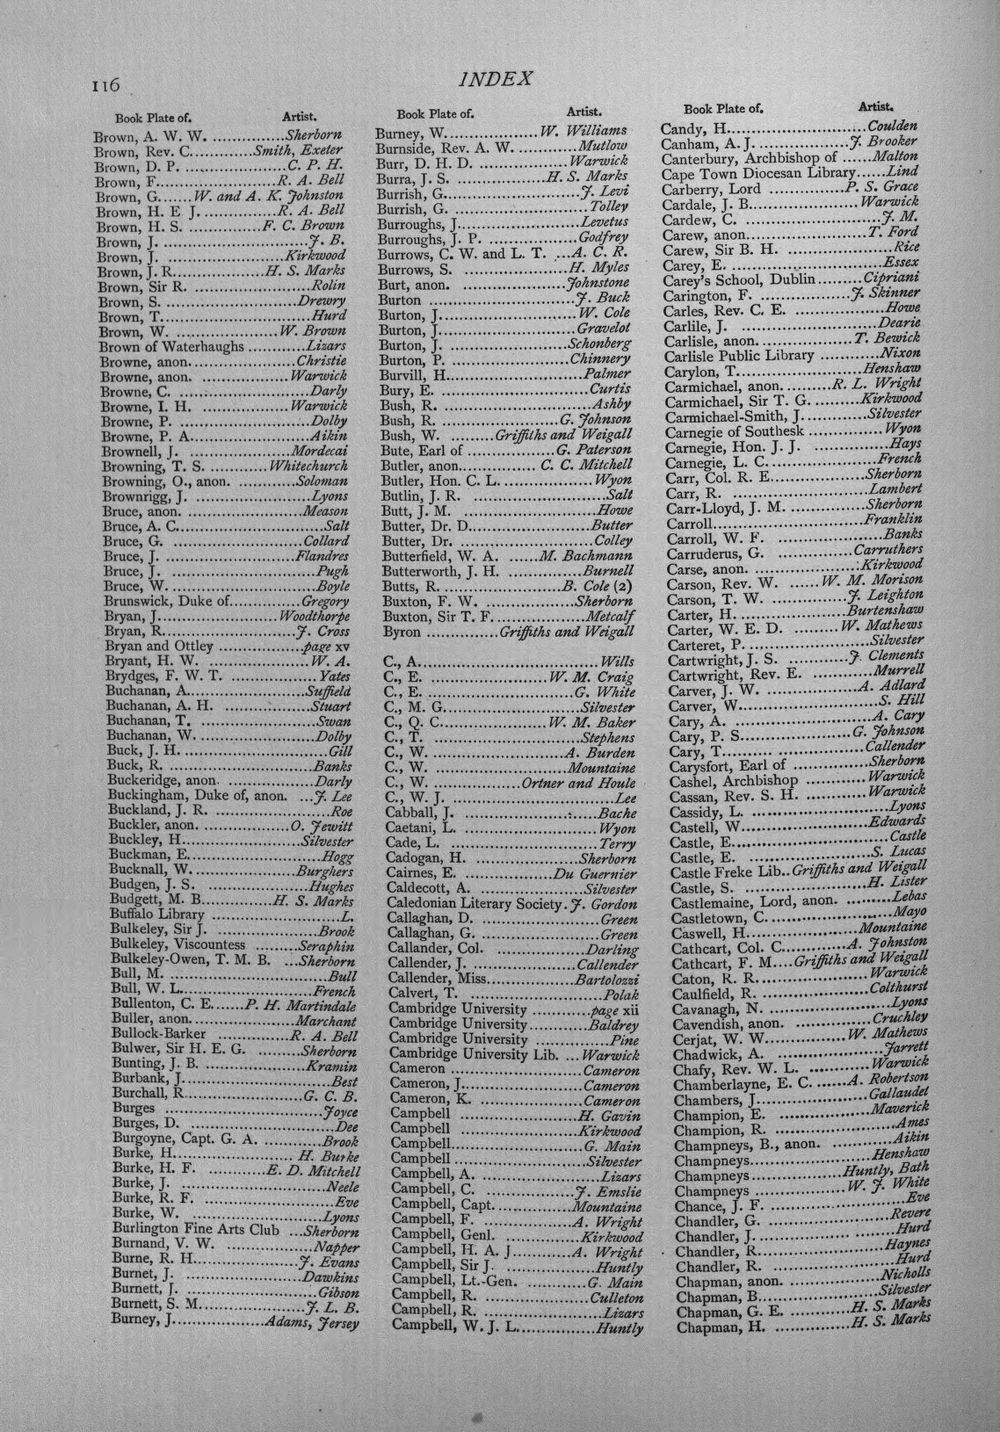 116
INDEX
Book Plate of. Artist.
Brown, A. W. W. ...............Sherborn
Brown, Rev. C.............Smith, Exeter
Brown, D. P. .....................C. P. H.
Brown, F.........................R. A. Bell
Brown, G.......W. and A. K. Johnston
Brown, H. E J. ................R. A. Bell
Brown, H. S. ...............F. C. Brown
Brown, J. ..............................J. B.
Brown, J. ..........................Kirkwood
Brown, J. R...................H. S. Marks
Brown, Sir R. ........................Rolin
Brown, S. ...........................Drewry
Brown, T...............................Hurd
Brown, W. .....................W. Brown
Brown of Waterhaughs ............Lizars
Browne, anon......................Christie
Browne, anon. ..................Warwick
Browne, C. ...........................Darly
Browne, I. H. ..................Warwick
Browne, P. ...........................Dolby
Browne, P. A.........................Aikin
Brownell, J. .......................Mordecai
Browning, T. S. ...........Whitechurch
Browning, O., anon. ............Soloman
Brownrigg, J. ........................Lyons
Bruce, anon. .........................Meason
Bruce, A. C..............................Salt
Bruce, G. ............................Collard
Bruce, J. ...........................Flandres
Bruce, J. ..............................Pugh
Bruce, W. .............................Boyle
Brunswick, Duke of..............Gregory
Bryan, J.........................Woodthorpe
Bryan, R...........................J. Cross
Bryan and Ottley .................page xv
Bryant, H. W. .......................W. A.
Brydges, F. W. T. ..................Yates
Buchanan, A........................Suffield
Buchanan, A. H. ....................Stuart
Buchanan, T. ........................Swan
Buchanan, W. ........................Dolby
Buck, J. H. .............................Gill
Buck, R. ..............................Banks
Buckeridge, anon. ..................Darly
Buckingham, Duke of, anon. ...J. Lee
Buckland, J. R. ........................Roe
Buckler, anon. ..................O. Jewitt
Buckley, H.........................Silvester
Buckman, E............................Hogg
Bucknall, W. ......................Burghers
Budgen, J. S. .......................Hughes
Budgett, M. B...............H. S. Marks
Buffalo Library ...........................L.
Bulkeley, Sir J. .....................Brook
Bulkeley, Viscountess .........Seraphin
Bulkeley-Owen, T. M. B. ...Sherborn
Bull, M. .................................Bull
Bull, W. L............................French
Bullenton, C. E.......P. H. Martindale
Buller, anon......................Marchant
Bullock-Barker ...............R. A. Bell
Bulwer, Sir H. E. G. .........Sherborn
Bunting, J. B. .....................Kramin
Burbank, J..............................Best
Burchall, R.........................G. C. B.
Burges .................................Joyce
Burges, D. ..............................Dee
Burgoyne, Capt. G. A. ............Brook
Burke, H. ........................H. Burke
Burke, H. F. ............E. D. Mitchell
Burke, J. ..............................Neele
Burke, R. F. ...........................Eve
Burke, W. .............................Lyons
Burlington Fine Arts Club ...Sherborn
Burnand, V. W. ..................Napper
Burne, R. H.....................J. Evans
Burnet, J. .........................Dawkins
Burnett, J. ...........................Gibson
Burnett, S. M......................J. L. B.
Burney, J...................Adams, Jersey
Book Plate of. Artist.
Burney, W...................W. Williams
Burnside, Rev. A. W. ............Mutlow
Burr, D. H. D. ..................Warwick
Burra, J. S. ..................H. S. Marks
Burrish, G...........................J. Levi
Burrish, G. ..........................Tolley
Burroughs, J.......................Levetus
Burroughs, J. P. ..................Godfrey
Burrows, C. W. and L. T. ....A. C. R.
Burrows, S. .....................H. Myles
Burt, anon. .......................Johnstone
Burton ..............................J. Buck
Burton, J............................W. Cole
Burton, J............................Gravelot
Burton, J. ........................Schonberg
Burton, P. ........................Chinnery
Burvill, H...........................Palmer
Bury, E. ..............................Curtis
Bush, R. ..............................Ashby
Bush, R. .......................G. Johnson
Bush, W. .........Griffiths and Weigall
Bute, Earl of ..................G. Paterson
Butler, anon................C. C. Mitchell
Butler, Hon. C. L. ..................Wyon
Butlin, J. R. ...........................Salt
Butt, J. M. ............................Howe
Butter, Dr. D........................Butter
Butter, Dr. ...........................Colley
Butterfield, W. A. ......M. Bachmann
Butterworth, J. H. ...............Burnell
Butts, R. .........................B. Cole (2)
Buxton, F. W. ..................Sherborn
Buxton, Sir T. F...................Metcalf
Byron ............Griffiths and Weigall
C., A....................................Wills
C., E. ..........................W. M. Craig
C., E. .............................G. White
C., M. G...........................Silvester
C., Q. C.....................W. M. Baker
C., T. ..............................Stephens
C., W. ...........................A. Burden
C., W. ............................Mountaine
C., W. ..................Ortner and Houle
C., W. J. ................................Lee
Cabball, J. ...........................Bache
Caetani, L. ............................Wyon
Cade, L. ..............................Terry
Cadogan, H. .....................Sherborn
Cairnes, E. ...................Du Guernier
Caldecott, A. .....................Silvester
Caledonian Literary Society.J. Gordon
Callaghan, D. ........................Green
Callaghan, G. ........................Green
Callander, Col. .....................Darling
Callender, J. .....................Callender
Callender, Miss..................Bartolozzi
Calvert, T. ...........................Polak
Cambridge University ............page xii
Cambridge University............Baldrey
Cambridge University ...............Pine
Cambridge University Lib. ...Warwick
Cameron ..........................Cameron
Cameron, J.......................Cameron
Cameron, K. .....................Cameron
Campbell ........................H. Gavin
Campbell .........................Kirkwood
Campbell...........................G. Main
Campbell ..........................Silvester
Campbell, A. .........................Lizars
Campbell, C. ..................J. Emslie
Campbell, Capt................Mountaine
Campbell, F. ..................A. Wright
Campbell, Genl. ................Kirkwood
Campbell, H. A. J............A. Wright
Campbell, Sir J. ..................Huntly
Campbell, Lt.-Gen. ............G. Main
Campbell, R. .....................Culleton
Campbell, R. .........................Lizars
Campbell, W. J. L................Huntly
Book Plate of. Artist.
Candy, H...........................Coulden
Canham, A. J...................J. Brooker
Canterbury, Archbishop of ......Malton
Cape Town Diocesan Library......Lind
Carberry, Lord ...............P. S. Grace
Cardale, J. B.....................Warwick
Cardew, C. ...........................J. M.
Carew, anon........................T. Ford
Carew, Sir B. H. .....................Rice
Carey, E. ..............................Essex
Carey's School, Dublin.........Cipriani
Carington, F. ..................J. Skinner
Carles, Rev. C. E. ..................Howe
Carlile, J. ............................Dearie
Carlisle, anon...................T. Bewick
Carlisle Public Library ............Nixon
Carylon, T.........................Henshaw
Carmichael, anon..........R. L. Wright
Carmichael, Sir T. G..........Kirkwood
Carmichael-Smith, J............Silvester
Carnegie of Southesk ...............Wyon
Carnegie, Hon. J. J. ................Hays
Carnegie, L. C......................French
Carr, Col. R. E..................Sherborn
Carr, R. ............................Lambert
Carr-Lloyd, J. M. ...............Sherborn
Carroll..............................Franklin
Carroll, W. F. .....................Banks
Carruderus, G. ................Carruthers
Carse, anon. .....................Kirkwood
Carson, Rev. W. ......W. M. Morison
Carson, T. W. ...............J. Leighton
Carter, H......................Burtenshaw
Carter, W. E. D. .........W. Mathews
Carteret, P. ......................Silvester
Cartwright, J. S. ...........J. Clements
Cartwright, Rev. E. ............Murrell
Carver, J. W. ..................A. Adlard
Carver, W............................S. Hill
Cary, A. ...........................A. Cary
Cary, P. S......................G. Johnson
Cary, T............................Callender
Carysfort, Earl of ...............Sherborn
Cashel, Archbishop ............Warwick
Cassan, Rev. S. H. ............Warwick
Cassidy, L. ...........................Lyons
Castell, W..........................Edwards
Castle, E..............................Castle
Castle, E. .........................S. Lucas
Castle Freke Lib..Griffiths and Weigall
Castle, S. .........................H. Lister
Castlemaine, Lord, anon. .........Lebas
Castletown, C. .......................Mayo
Caswell, H.......................Mountaine
Cathcart, Col. C............A. Johnston
Cathcart, F. M....Griffiths and Weigall
Caton, R. R. .....................Warwick
Caulfield, R. .....................Colthurst
Cavanagh, N. ........................Lyons
Cavendish, anon. ...............Cruchley
Cerjat, W. W...............W. Mathews
Chadwick, A. ......................Jarrett
Chafy, Rev. W. L. ............Warwick
Chamberlayne, E. C. ......A. Robertson
Chambers, J.....................Gallaudet
Champion, E. ..................Maverick
Champion, R. ........................Ames
Champneys, B., anon. ............Aikin
Champneys......................Henshaw
Champneys................Huntly, Bath
Champneys ..................W. J. White
Chance, J. F. ..........................Eve
Chandler, G. .......................Revere
Chandler, J............................Hurd
Chandler, R.........................Haynes
Chandler, R. .........................Hurd
Chapman, anon. ..................Nicholls
Chapman, B......................Silvester
Chapman, G. E. ............H. S. Marks
Chapman, H. ................H. S. Marks